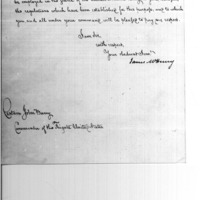 be employed in the place of
the regulations which have been established for this purpose, and to which
you and all under your command will be pleased to pay any respect.
I am, Sir,
with respect,
Your Obedient Servt
James McHenry
Captain John Barry
Commander of the Frigate United States